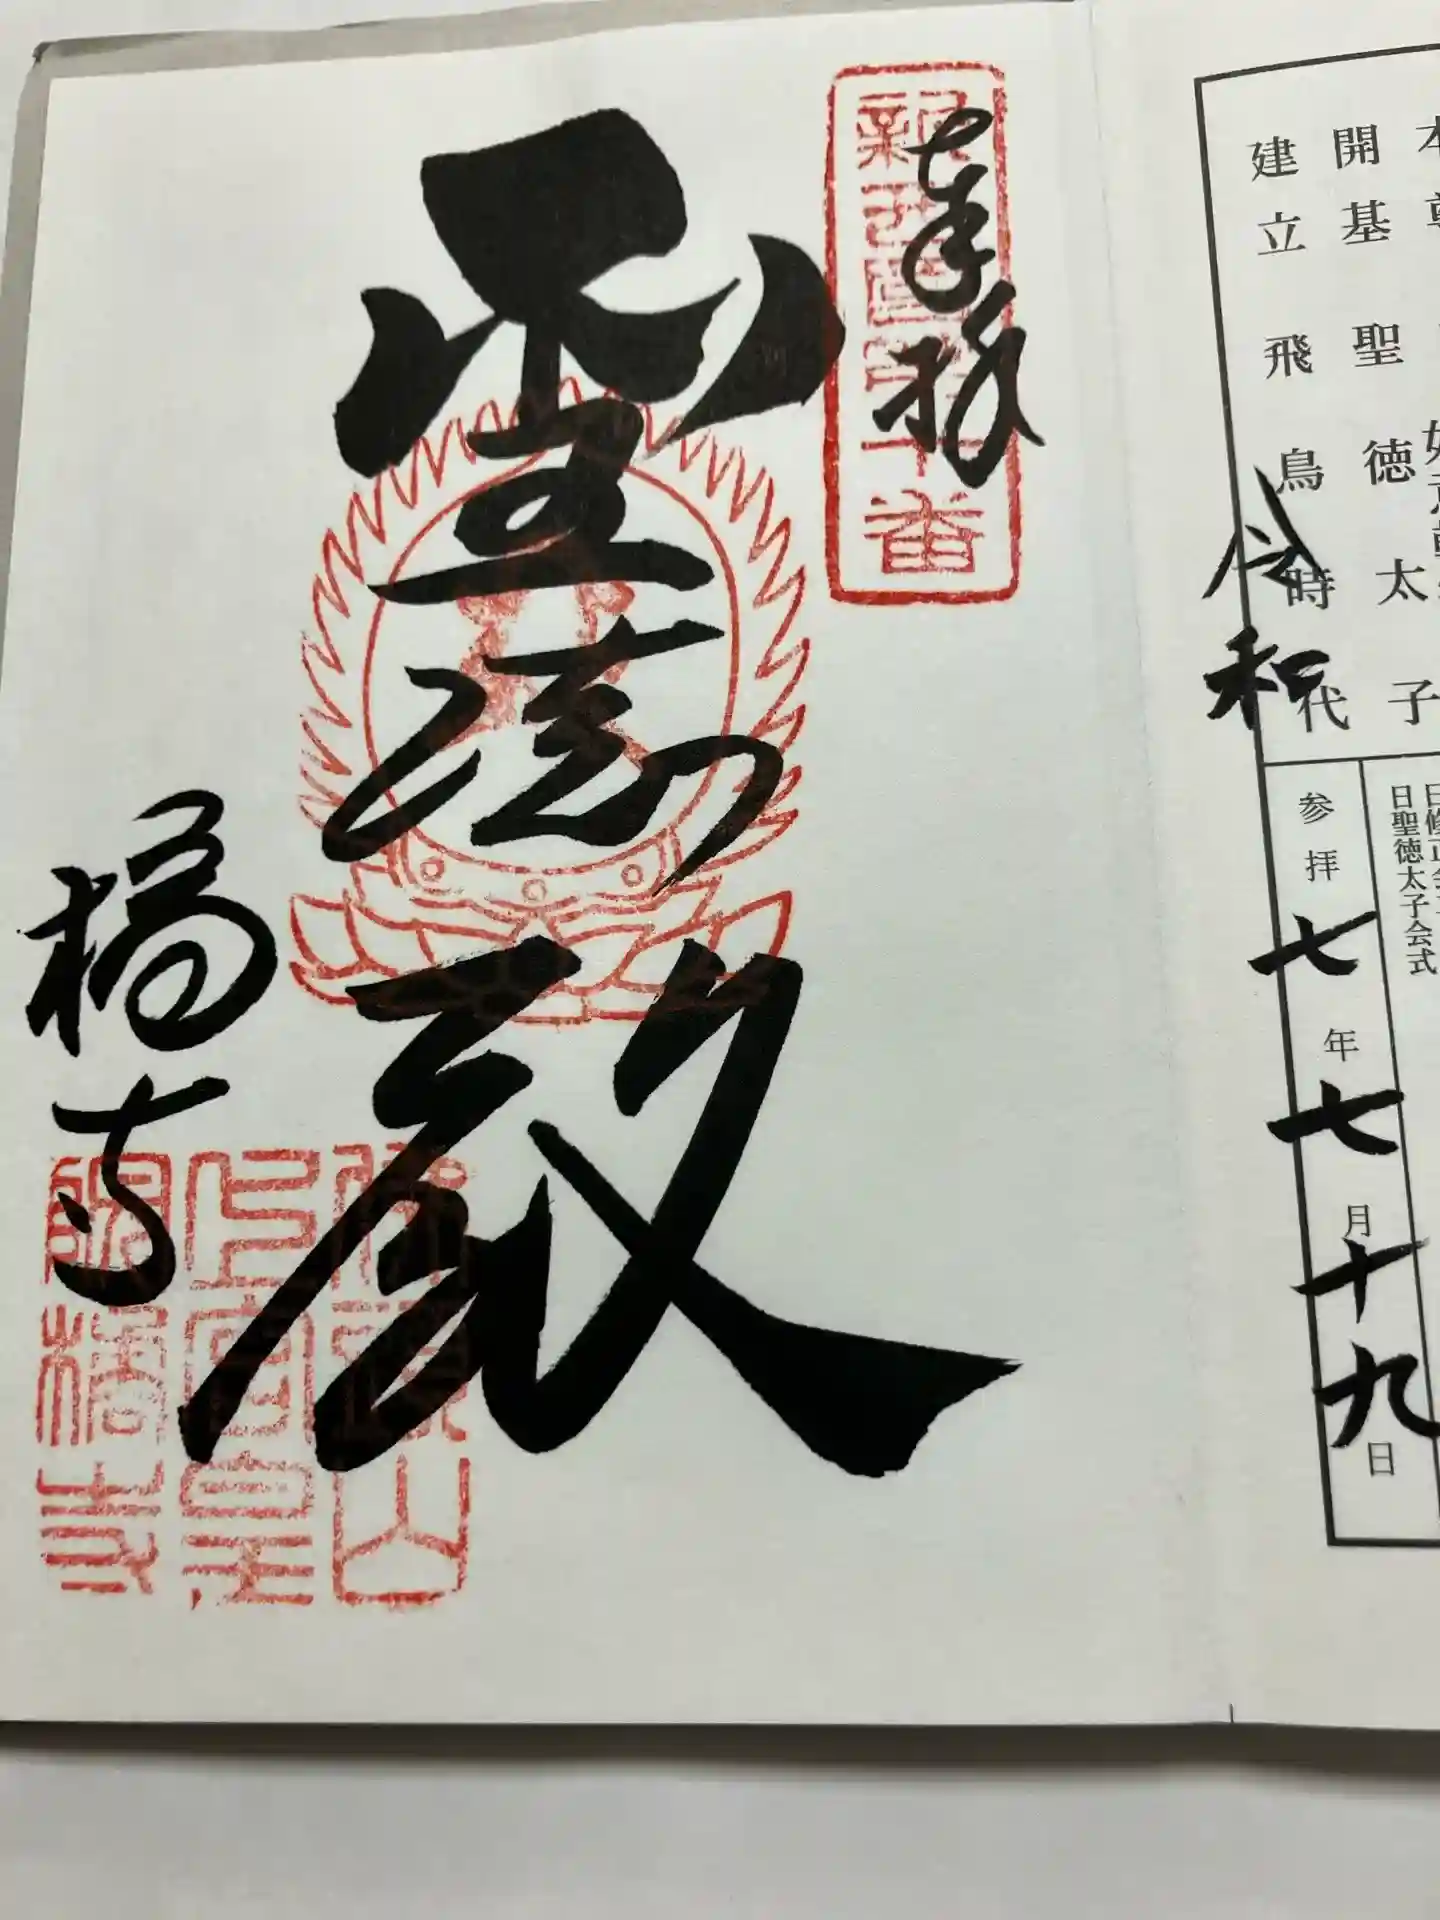 開基 聖徳太子
建立 飛鳥時代
日聖徳太子会式
令和
参拝 七年七月十九日
奉拝
新西国第十番
聖徳殿
橘寺
佛頭山
上宮皇
院橘寺